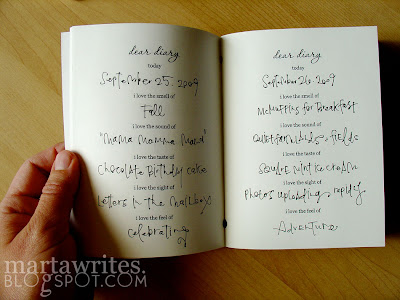 dear diary
today
September 25, 2009
i love the smell of
Fall
i love the sound of
"Mama Momma Mama"
i love the taste of
Chocolate Birthday cake
i love the sight of
Letters in the mailbox
i love the feel of
celebrating
dear diary
today
September 26, 2009
i love the smell of
McMuffins for Breakfast
i love the sound of
fields
i love the taste of
Square mint ice cream
i love the sight of
Photos uploading, rapidly
i love the feel of
Adventure
martawrites.
BLOGSPOT.COM